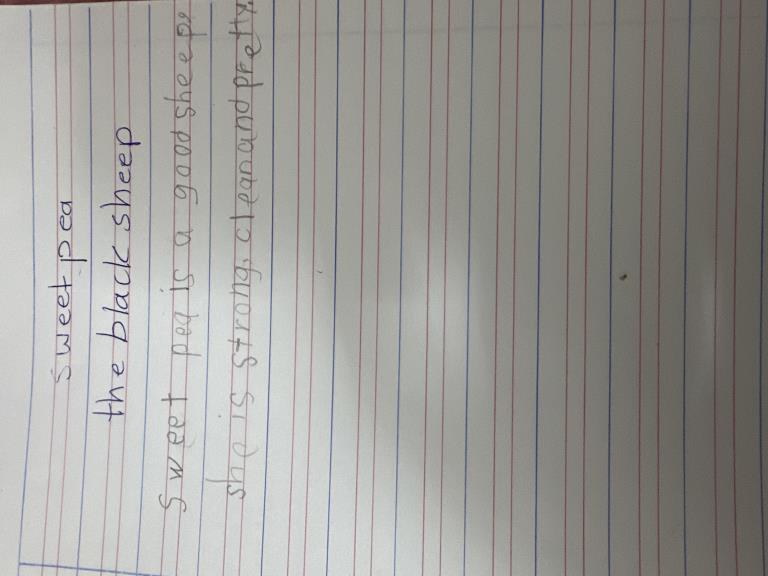 sweet pea
the black sheep
Sweet pea is a good sheep,
she is strong, clean and pretty.